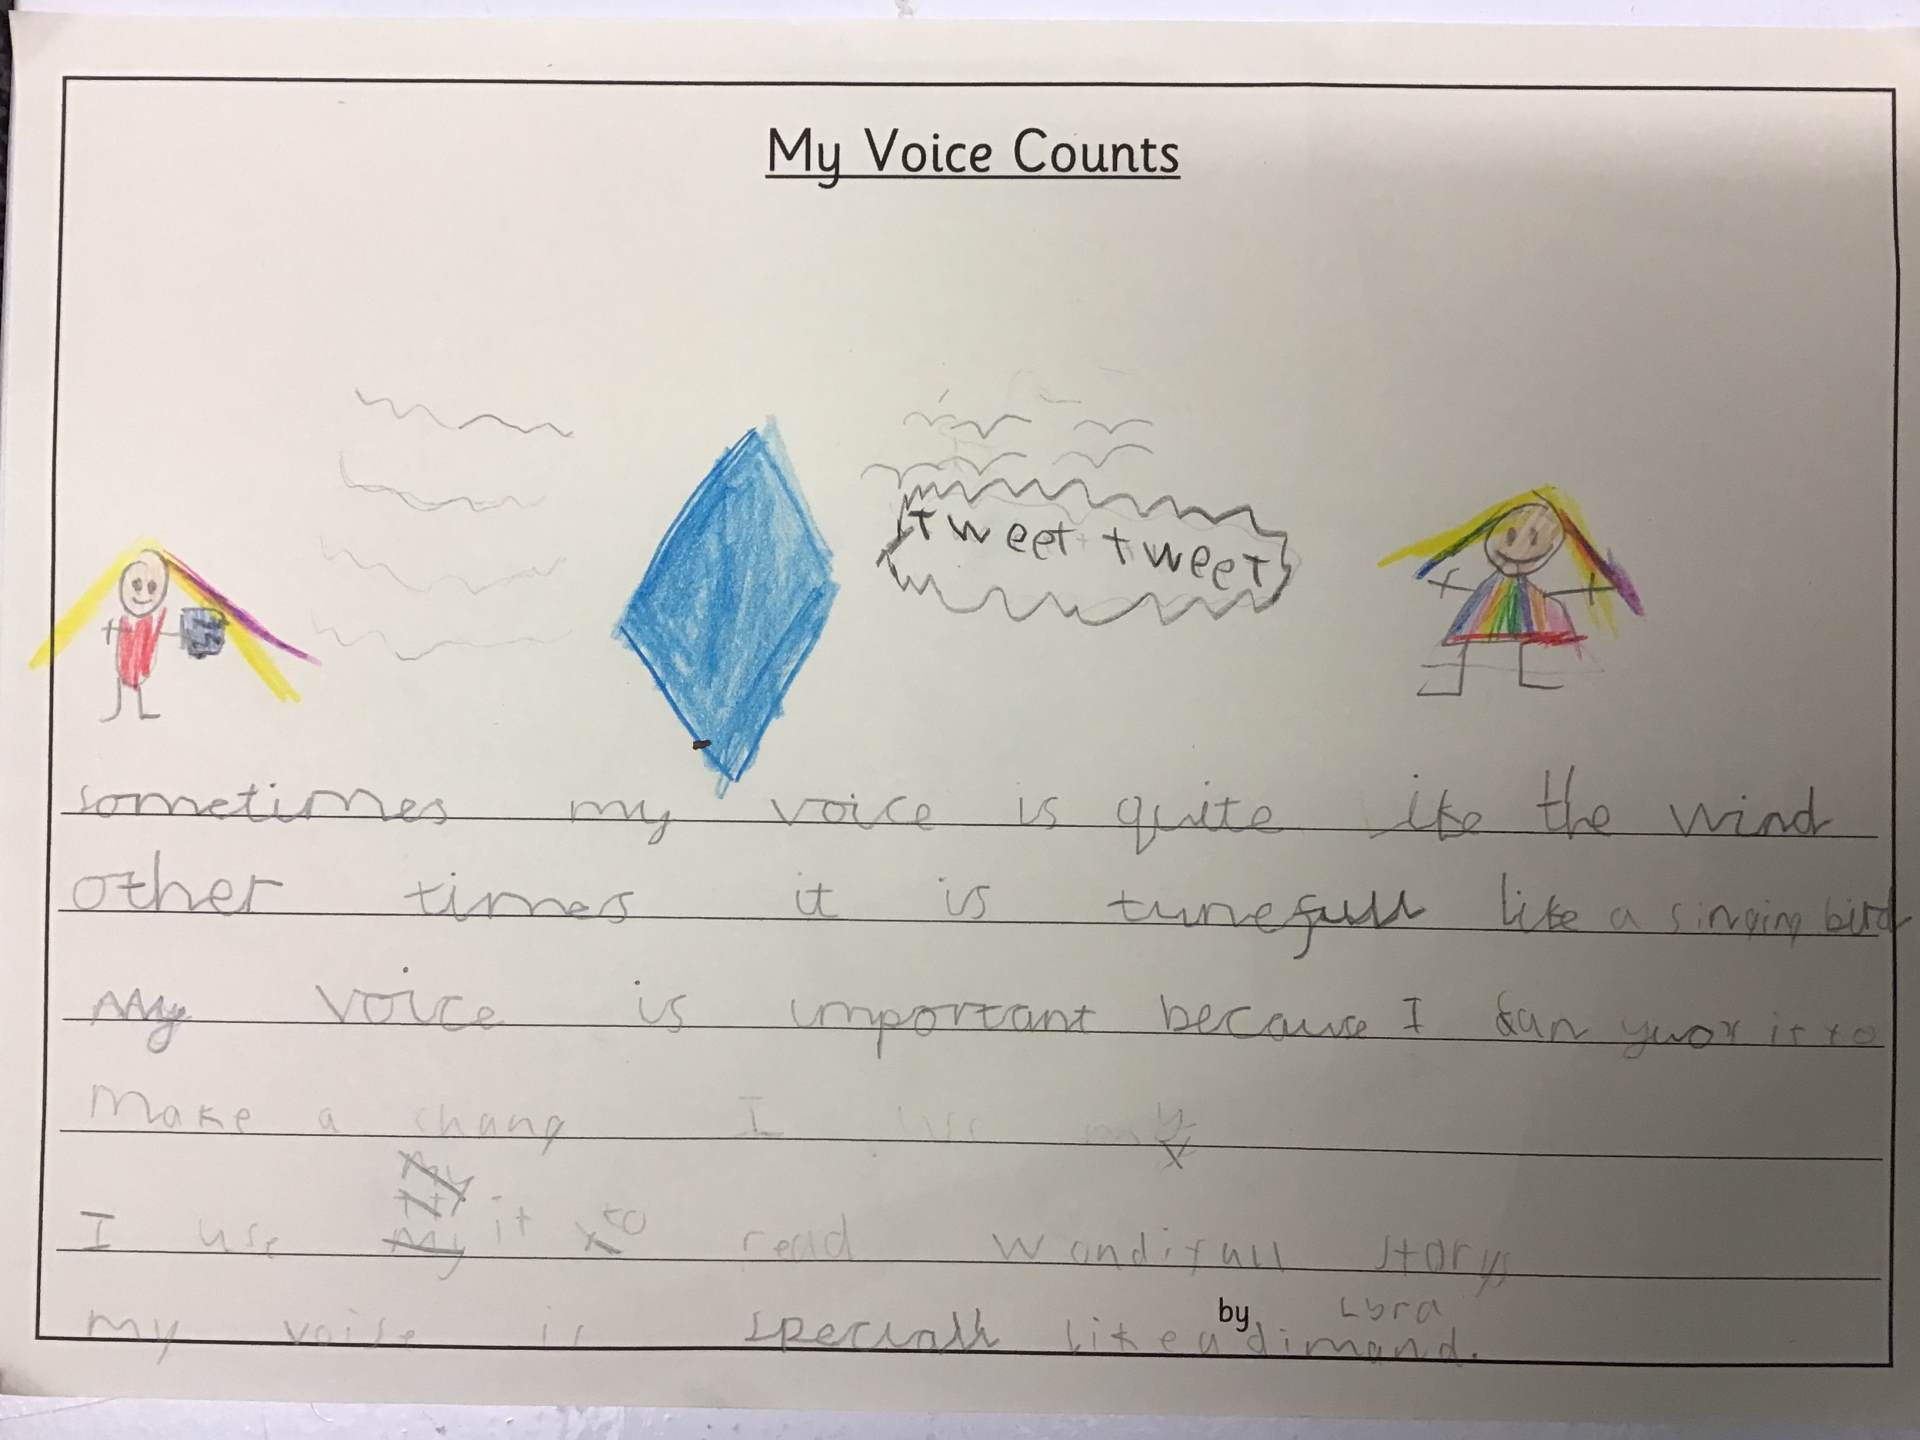 My Voice Counts
tweet tweet
sometimes my voice is quite like the wind
other times it is tunefull like a singing bird
My voice is important because I can it to
make a chang I use my
I use it to read wondifull storys
my voise is speciall like a dimand.
by Lyra